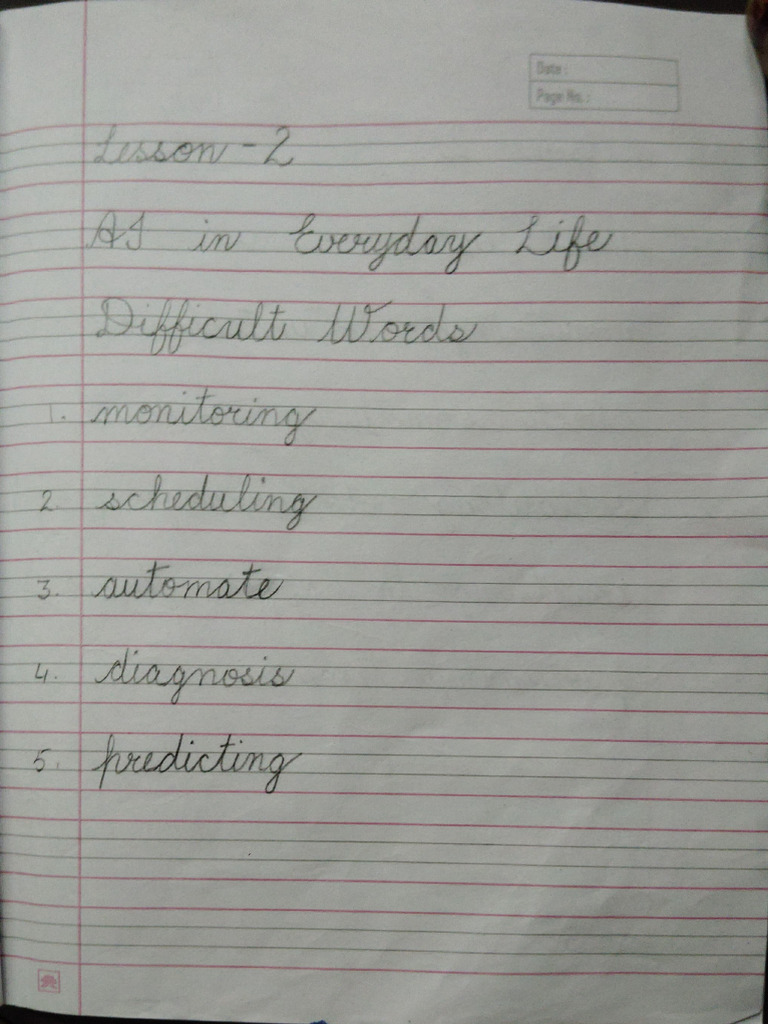 Date :
Page No. :
Lesson - 2
AI in Everyday Life
Difficult Words
1. monitoring
2. scheduling
3. automate
4. diagnosis
5. predicting